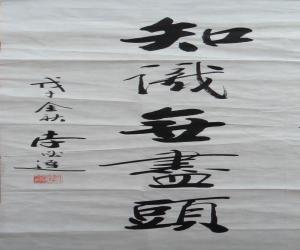 知識無盡頭
戊子金秋 李